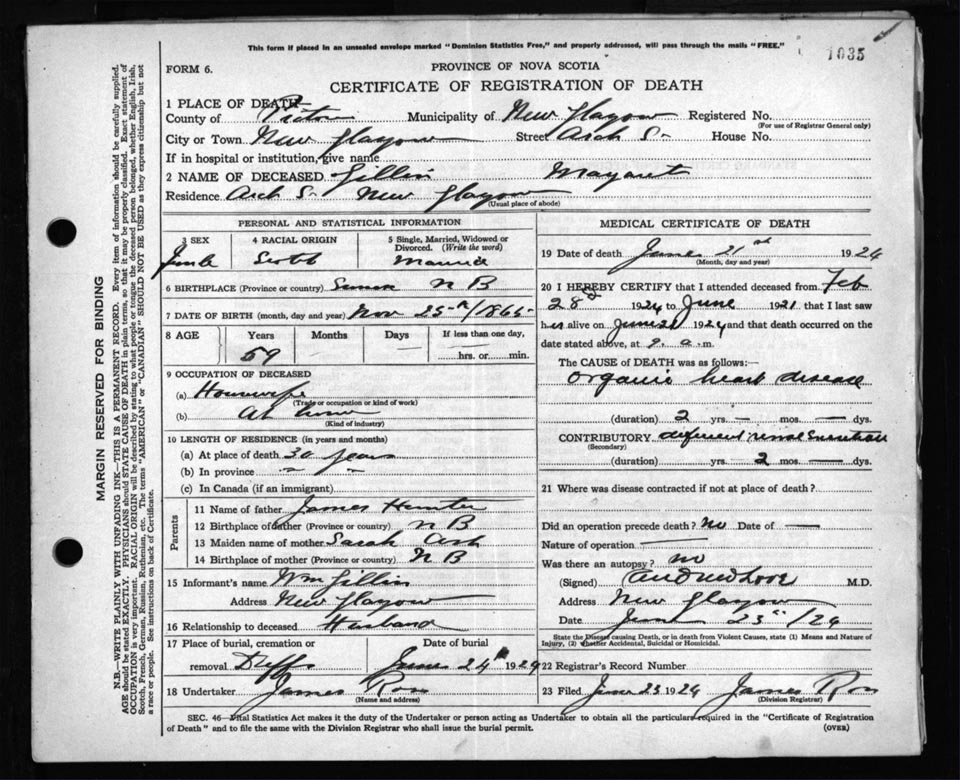 This form if placed in an unsealed envelope marked "Dominion Statistics Free," and properly addressed, will pass through the mails "FREE."
1035
FORM 6.
PROVINCE OF NOVA SCOTIA
CERTIFICATE OF REGISTRATION OF DEATH
1 PLACE OF DEATH—
County of Pictou Municipality of New Glasgow Registered No.
(For use of Registrar General only)
City or Town New Glasgow Street Arch St House No.
If in hospital or institution, give name
2 NAME OF DECEASED Gillis Margaret
Residence Arch St New Glasgow
(Usual place of abode)
PERSONAL AND STATISTICAL INFORMATION
3 SEX 4 RACIAL ORIGIN 5 Single, Married, Widowed or Divorced. (Write the word)
Female Scotch Married
6 BIRTHPLACE (Province or country) N B
7 DATE OF BIRTH (month, day and year) Nov 25th/1865
8 AGE Years Months Days If less than one day,
59 hrs. or min.
9 OCCUPATION OF DECEASED
(a) Housewife
(Trade or occupation or kind of work)
(b) At home
(Kind of industry)
10 LENGTH OF RESIDENCE (in years and months)
(a) At place of death 30 years
(b) In province " "
(c) In Canada (if an immigrant)
Parents
11 Name of father James Hunter
12 Birthplace of father (Province or country) N B
13 Maiden name of mother Sarah Ash
14 Birthplace of mother (Province or country) N B
15 Informant's name Wm Gillis
Address New Glasgow
16 Relationship to deceased Husband
17 Place of burial, cremation or removal Duffs Date of burial June 24th 1924
18 Undertaker James Ross
(Name and address)
MEDICAL CERTIFICATE OF DEATH
19 Date of death June 21st 1924
(Month, day and year)
20 I HEREBY CERTIFY that I attended deceased from Feb
28th 1924 to June 1921 that I last saw
her alive on June 21 1924 and that death occurred on the
date stated above, at 9 a.m.
The CAUSE of DEATH was as follows:—
organic heart disease
(duration) 2 yrs. — mos. — dys.
CONTRIBUTORY deficient renal
(Secondary)
(duration) yrs. 2 mos. dys.
21 Where was disease contracted if not at place of death?
Did an operation precede death? no Date of —
Nature of operation —
Was there an autopsy? no
(Signed) M.D.
Address New Glasgow
Date June 23rd/24
State the Disease causing Death, or in death from Violent Causes, state (1) Means and Nature of Injury, (2) whether Accidental, Suicidal or Homicidal.
22 Registrar's Record Number
23 Filed June 23 1924 James Ross
(Division Registrar)
SEC. 46—Vital Statistics Act makes it the duty of the Undertaker or person acting as Undertaker to obtain all the particulars required in the "Certificate of Registration
of Death" and to file the same with the Division Registrar who shall issue the burial permit. (OVER)
MARGIN RESERVED FOR BINDING
N.B.—WRITE PLAINLY WITH UNFADING INK—THIS IS A PERMANENT RECORD. Every item of information should be carefully supplied.
AGE should be stated EXACTLY. PHYSICIANS should STATE CAUSE OF DEATH in plain terms, so that it may be properly classified. Exact statement of
OCCUPATION is very important. RACIAL ORIGIN will be described by stating to what people or tongue the deceased person belonged, whether English, Irish,
Scotch, French, German, Russian, Ruthenian, etc. The terms "AMERICAN" or "CANADIAN" SHOULD NOT BE USED as they express citizenship but not
a race or people. See instructions on back of Certificate.